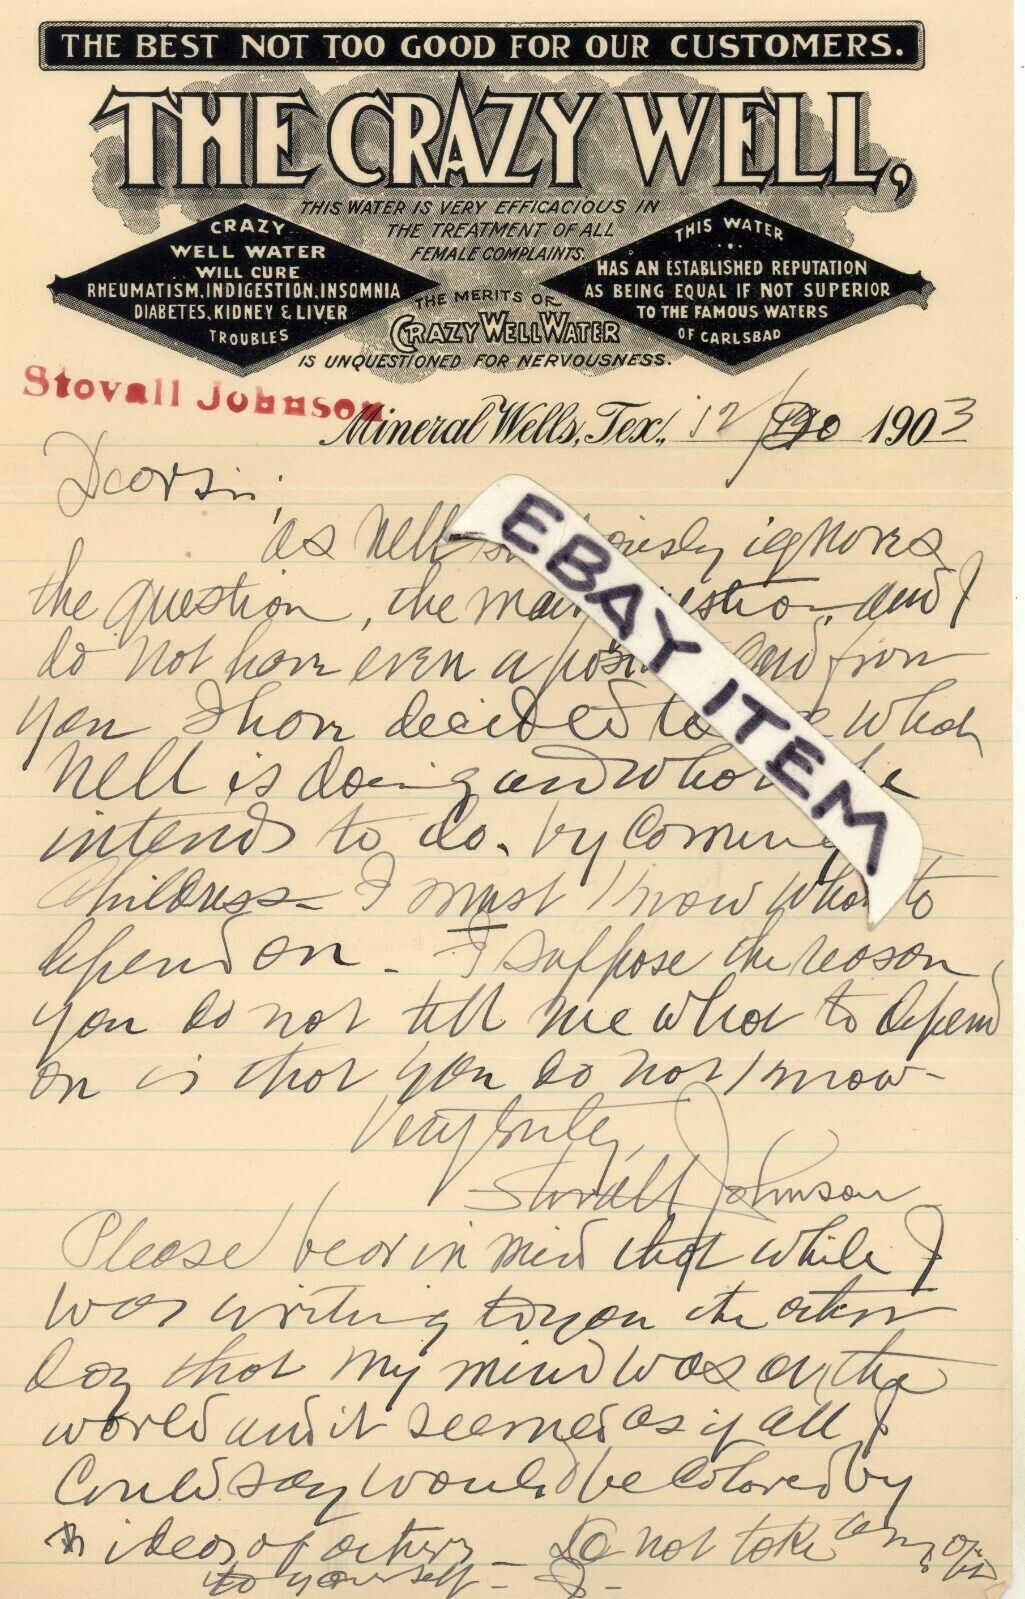 THE BEST NOT TOO GOOD FOR OUR CUSTOMERS.
THE CRAZY WELL,
THIS WATER IS VERY EFFICACIOUS IN
THE TREATMENT OF ALL
FEMALE COMPLAINTS.
CRAZY
WELL WATER
WILL CURE
RHEUMATISM, INDIGESTION, INSOMNIA
DIABETES, KIDNEY & LIVER
TROUBLES
THE MERITS OF
CRAZY WELL WATER
IS UNQUESTIONED FOR NERVOUSNESS.
THIS WATER
HAS AN ESTABLISHED REPUTATION
AS BEING EQUAL IF NOT SUPERIOR
TO THE FAMOUS WATERS
OF CARLSBAD
Stovall Johnson
Mineral Wells, Tex., 12/ 1903
Dear Sir;
as Nell ignores
the question, the main and I
do not have even a and from
you I have decided to what
Nell is doing and what
intends to do. by coming
Childress - I must know what to
depend on - I suppose the reason
you do not tell me what to depend
on is that you do not know -
Very truly,
Stovall Johnson
Please bear in mind that while I
was writing to you the other
day that my mind was on the
world and it seemed as if all I
could say would be colored by
ideas of others - Do not take
to yourself -
EBAY ITEM